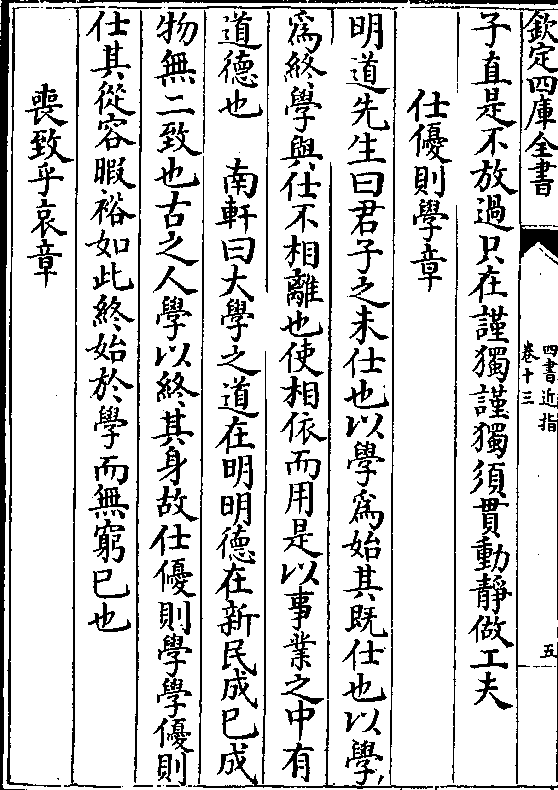 欽定四庫全書
四書近指
卷十三
五
子直是不放過只在謹獨謹獨須貫動靜做工夫
仕優則學章
明道先生曰君子之未仕也以學爲始其既仕也以學
爲終學與仕不相離也使相依而用是以事業之中有
道德也　南軒曰大學之道在明明德在新民成己成
物無二致也古之人學以終其身故仕優則學學優則
仕其從容暇裕如此終始於學而無窮已也
喪致乎哀章